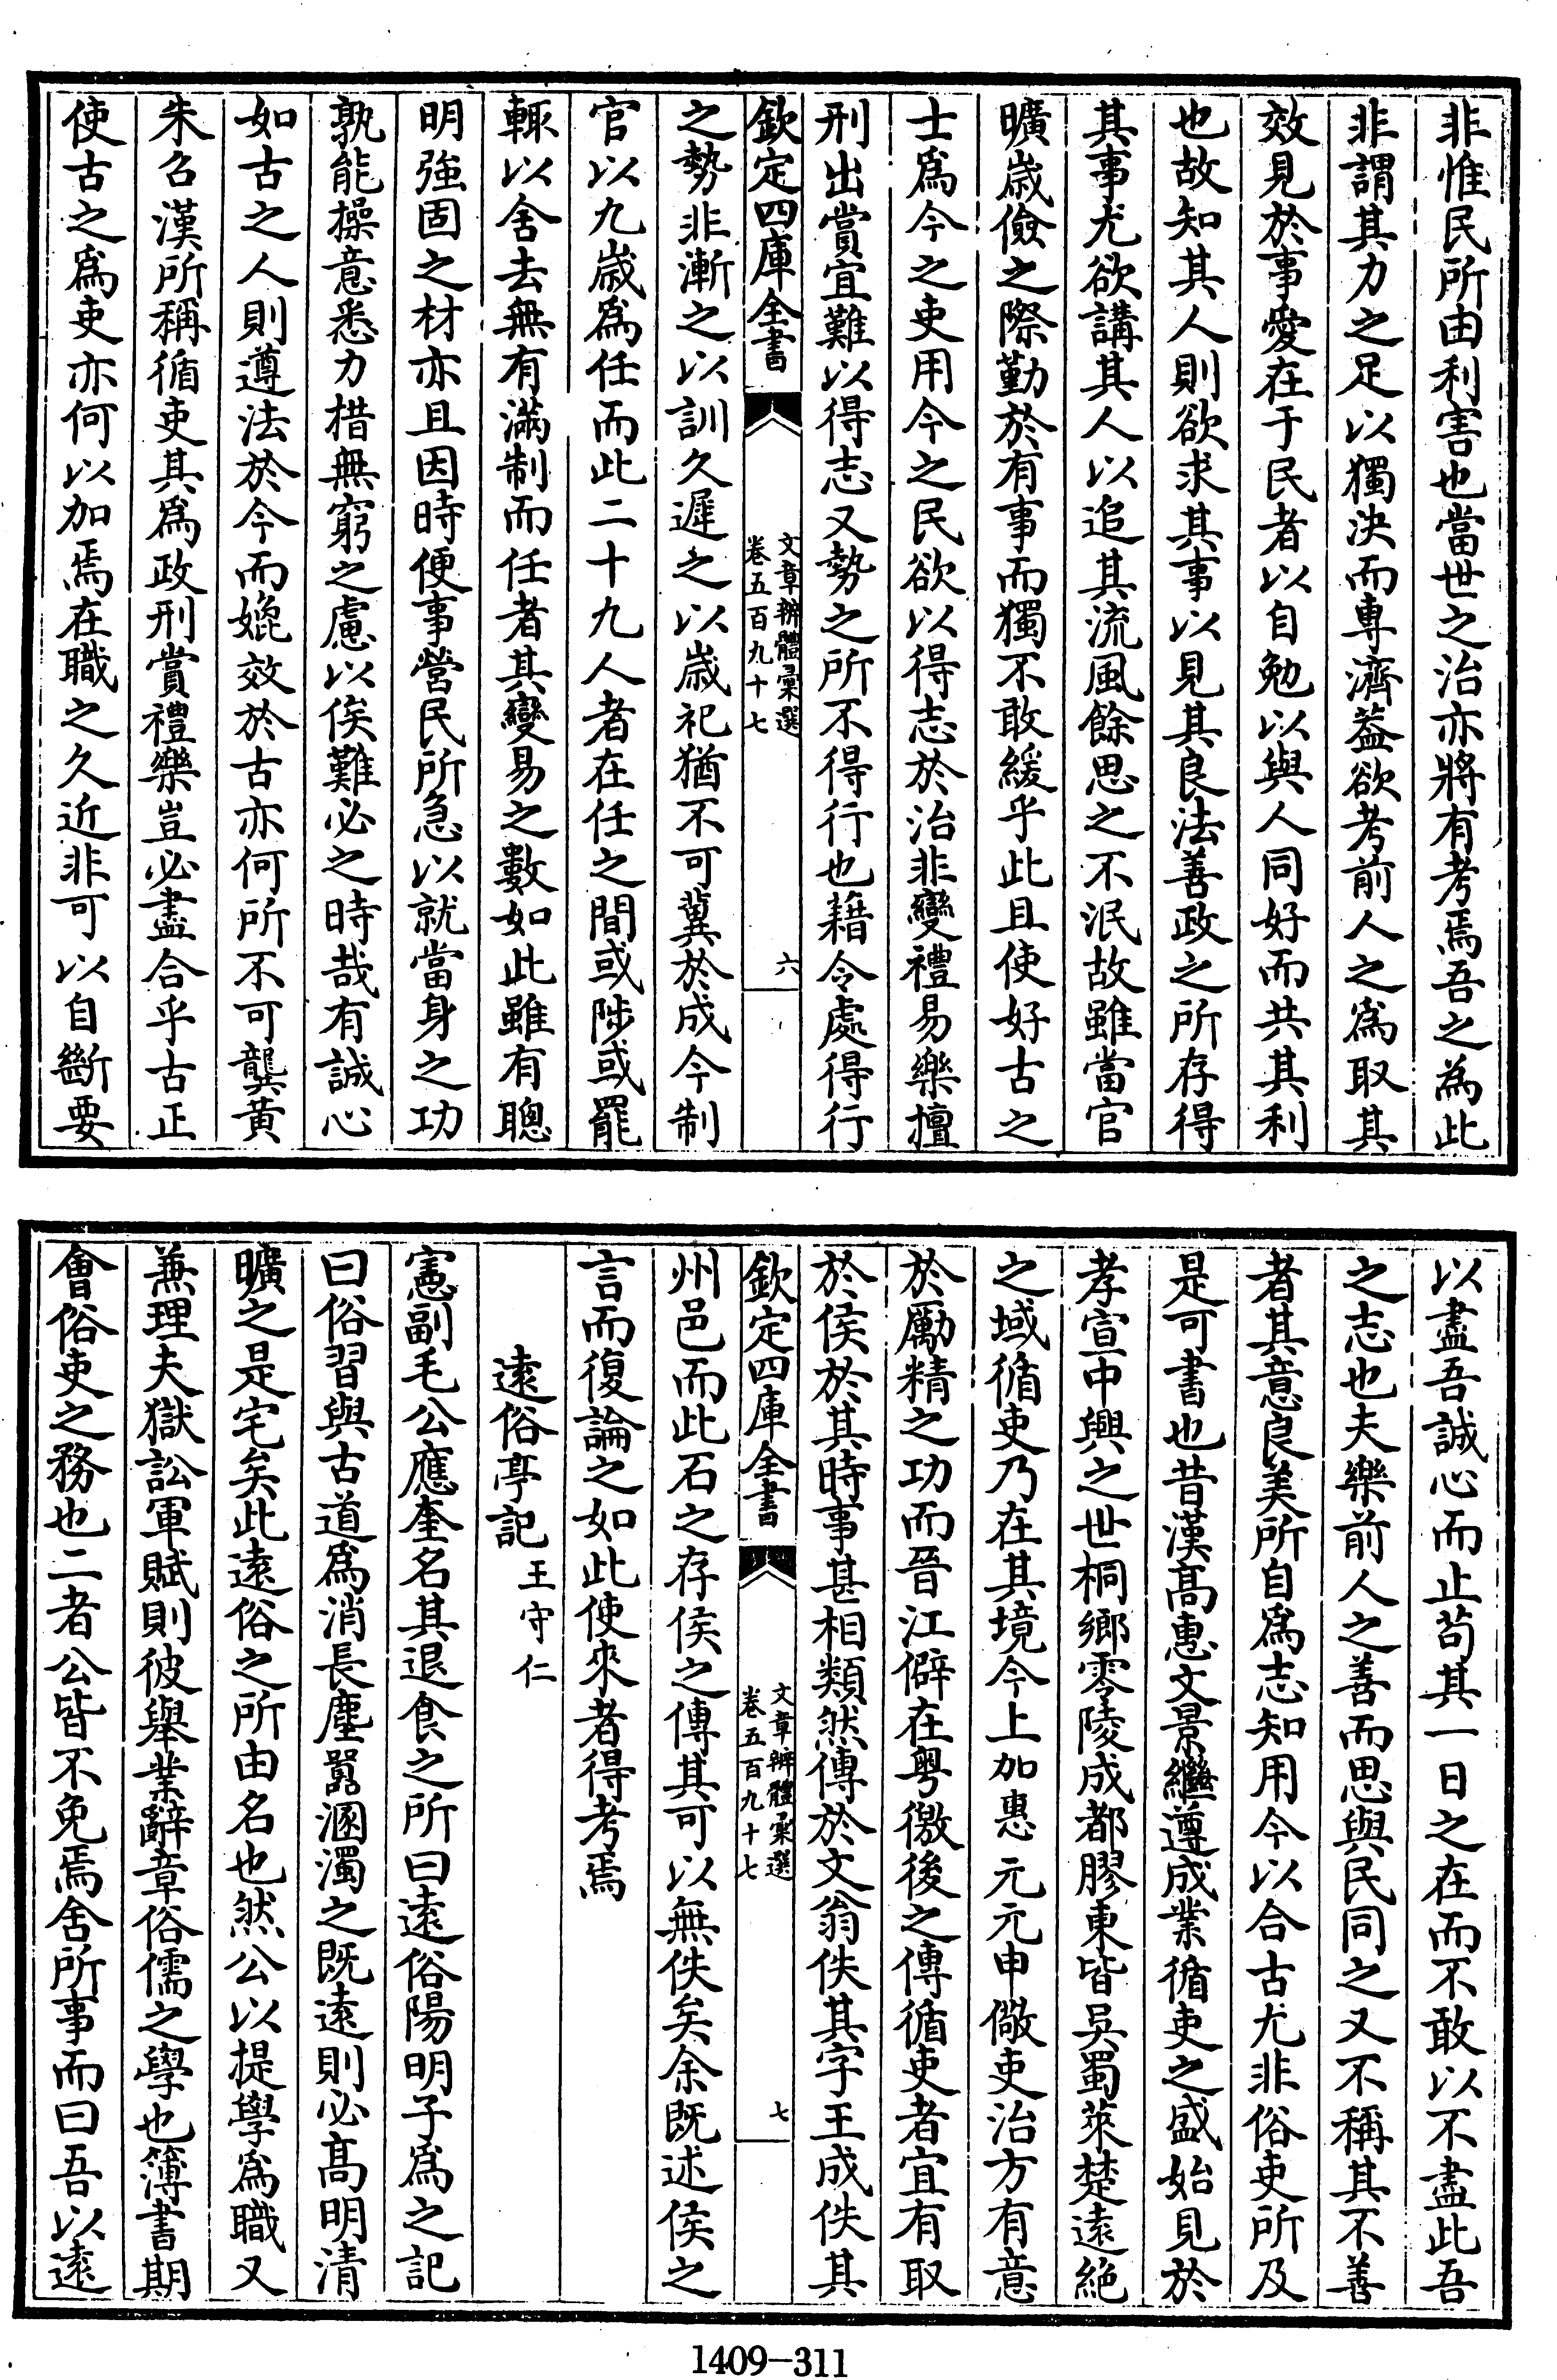 非惟民所由利害也當世之治亦將有考焉吾之為此
非謂其力之足以獨決而專濟葢欲考前人之爲取其
效見於事愛在于民者以自勉以與人同好而共其利
也故知其人則欲求其事以見其良法善政之所存得
其事尤欲講其人以追其流風餘思之不泯故雖當官
曠歲儉之際勤於有事而獨不敢緩乎此且使好古之
士爲今之吏用今之民欲以得志於治非變禮易樂擅
刑出賞宜難以得志又勢之所不得行也藉令處得行
欽定四庫全書
文章辨體彙選
卷五百九十七
六
之勢非漸之以訓久遲之以歲祀猶不可冀於成今制
官以九歲爲任而此二十九人者在任之間或陟或罷
輒以舍去無有滿制而任者其變易之數如此雖有聰
明強固之材亦且因時便事營民所急以就當身之功
孰能操意悉力措無窮之慮以俟難必之時哉有誠心
如古之人則遵法於今而媲效於古亦何所不可龔黃
朱召漢所稱循吏其爲政刑賞禮樂豈必盡合乎古正
使古之爲吏亦何以加焉在職之久近非可以自斷要
以盡吾誠心而止苟其一日之在而不敢以不盡此吾
之志也夫樂前人之善而思與民同之又不稱其不善
者其意良美所自爲志知用今以合古尤非俗吏所及
是可書也昔漢髙惠文景繼遵成業循吏之盛始見於
孝宣中興之世桐鄉零陵成都膠東皆吳蜀萊楚遠絶
之域循吏乃在其境今上加惠元元申儆吏治方有意
於勵精之功而晉江僻在粤徼後之傳循吏者宜有取
於侯於其時事甚相類然傳於文翁佚其字王成佚其
欽定四庫全書
文章辨體彙選
卷五百九十七
七
州邑而此石之存侯之傳其可以無佚矣余既述侯之
言而復論之如此使來者得考焉
遠俗亭記 王守仁
憲副毛公應奎名其退食之所曰遠俗陽明子爲之記
曰俗習與古道爲消長塵囂溷濁之既遠則必髙明清
曠之是宅矣此遠俗之所由名也然公以提學爲職又
兼理夫獄訟軍賦則彼舉業辭章俗儒之學也簿書期
會俗吏之務也二者公皆不免焉舍所事而曰吾以遠
1409-311